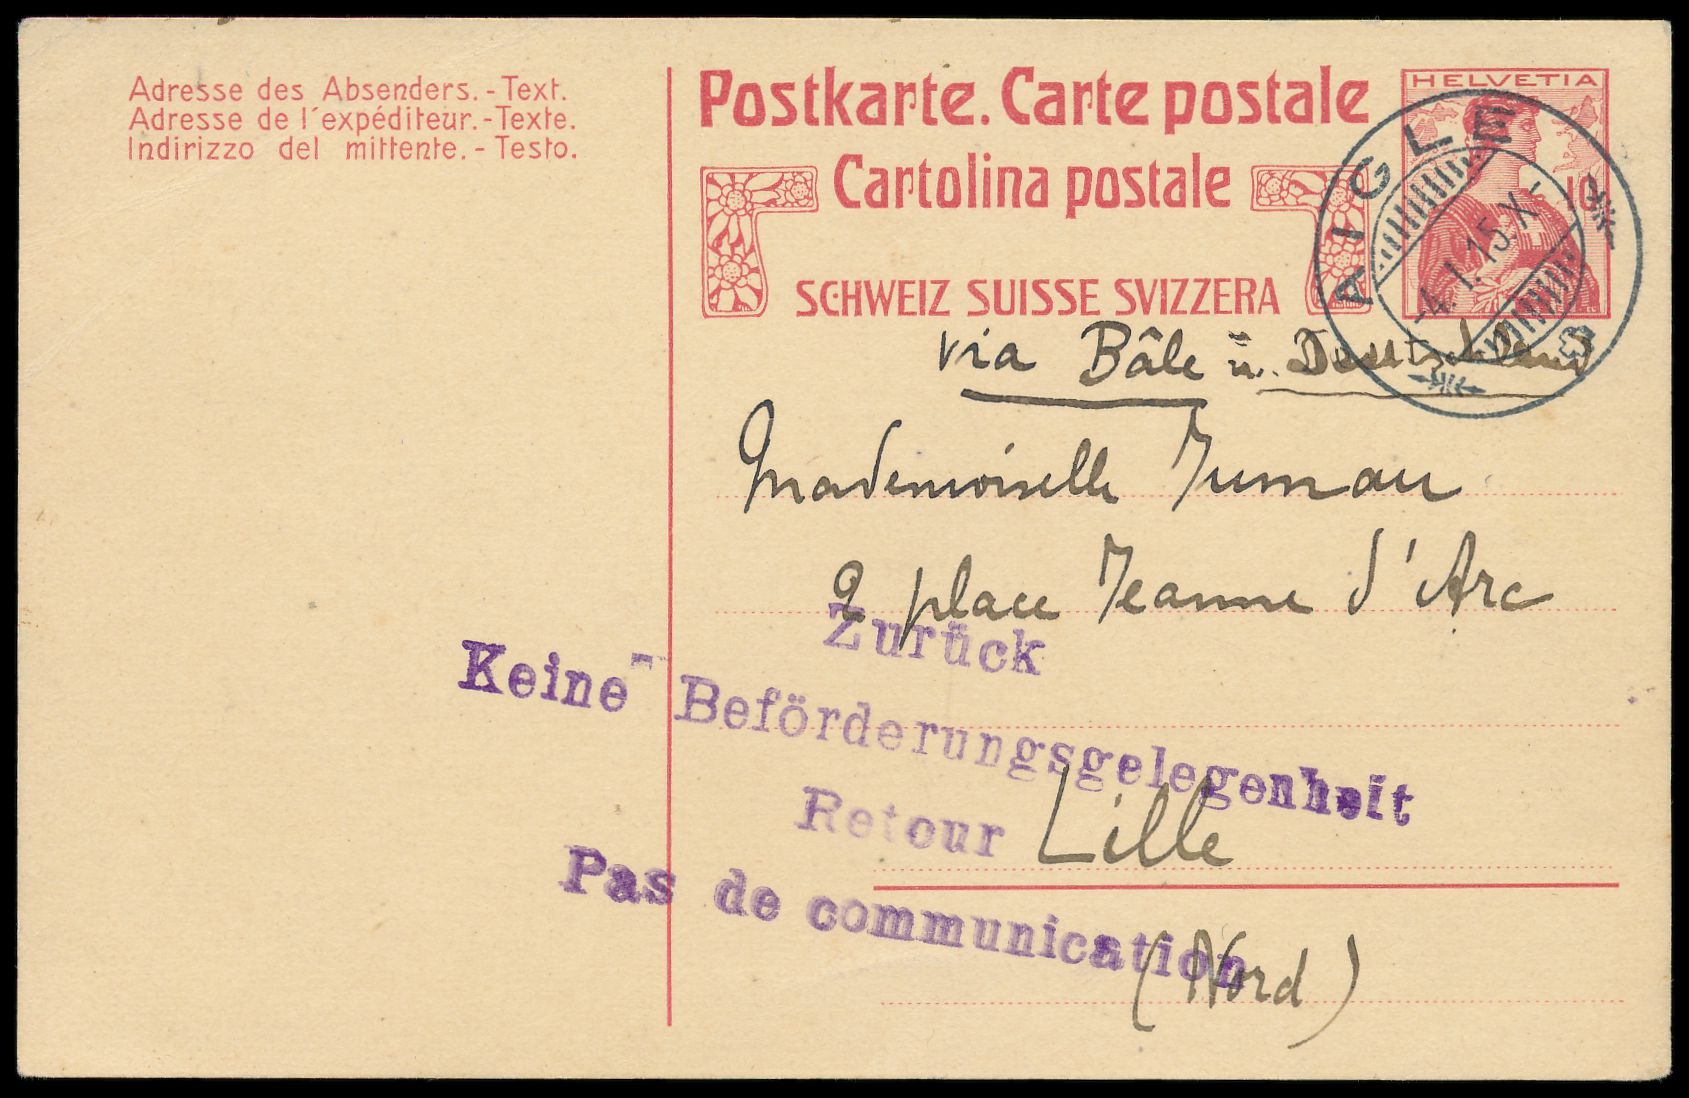 Adresse des Absenders. - Text.
Adresse de l'expéditeur. - Texte.
Indirizzo del mittente. - Testo.
Postkarte. Carte postale
Cartolina postale
SCHWEIZ SUISSE SVIZZERA
HELVETIA
10
AIGLE
-4.I.15.X-
via Bâle u. Deutschland
Mademoiselle Jumau
2 place Jeanne d'Arc
Zurück
Keine Beförderungsgelegenheit
Retour
Lille
Pas de communication
(Nord)